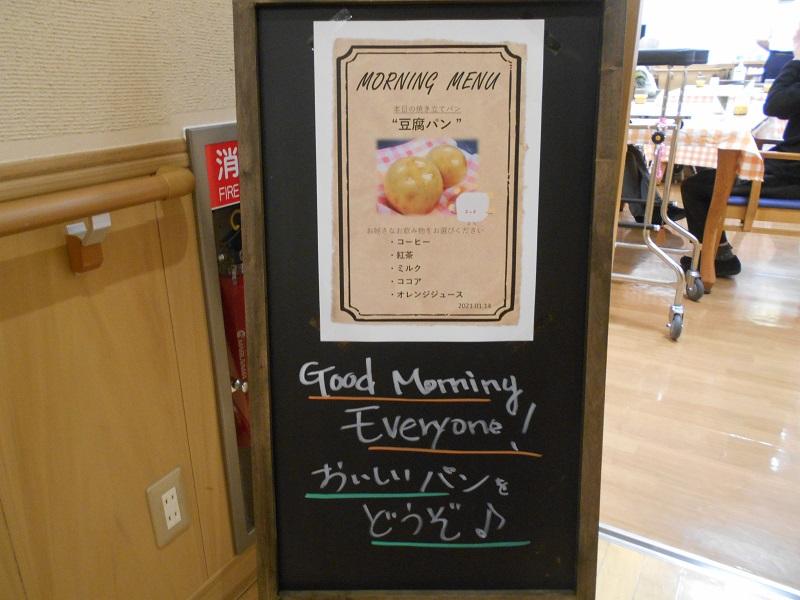 消
FIRE
MORNING MENU
本日の焼き立てパン
“豆腐パン ”
お好きなお飲み物をお選びください
・コーヒー
・紅茶
・ミルク
・ココア
・オレンジジュース
2021.01.14
Good Morning
Everyone!
おいしいパンを
どうぞ♪